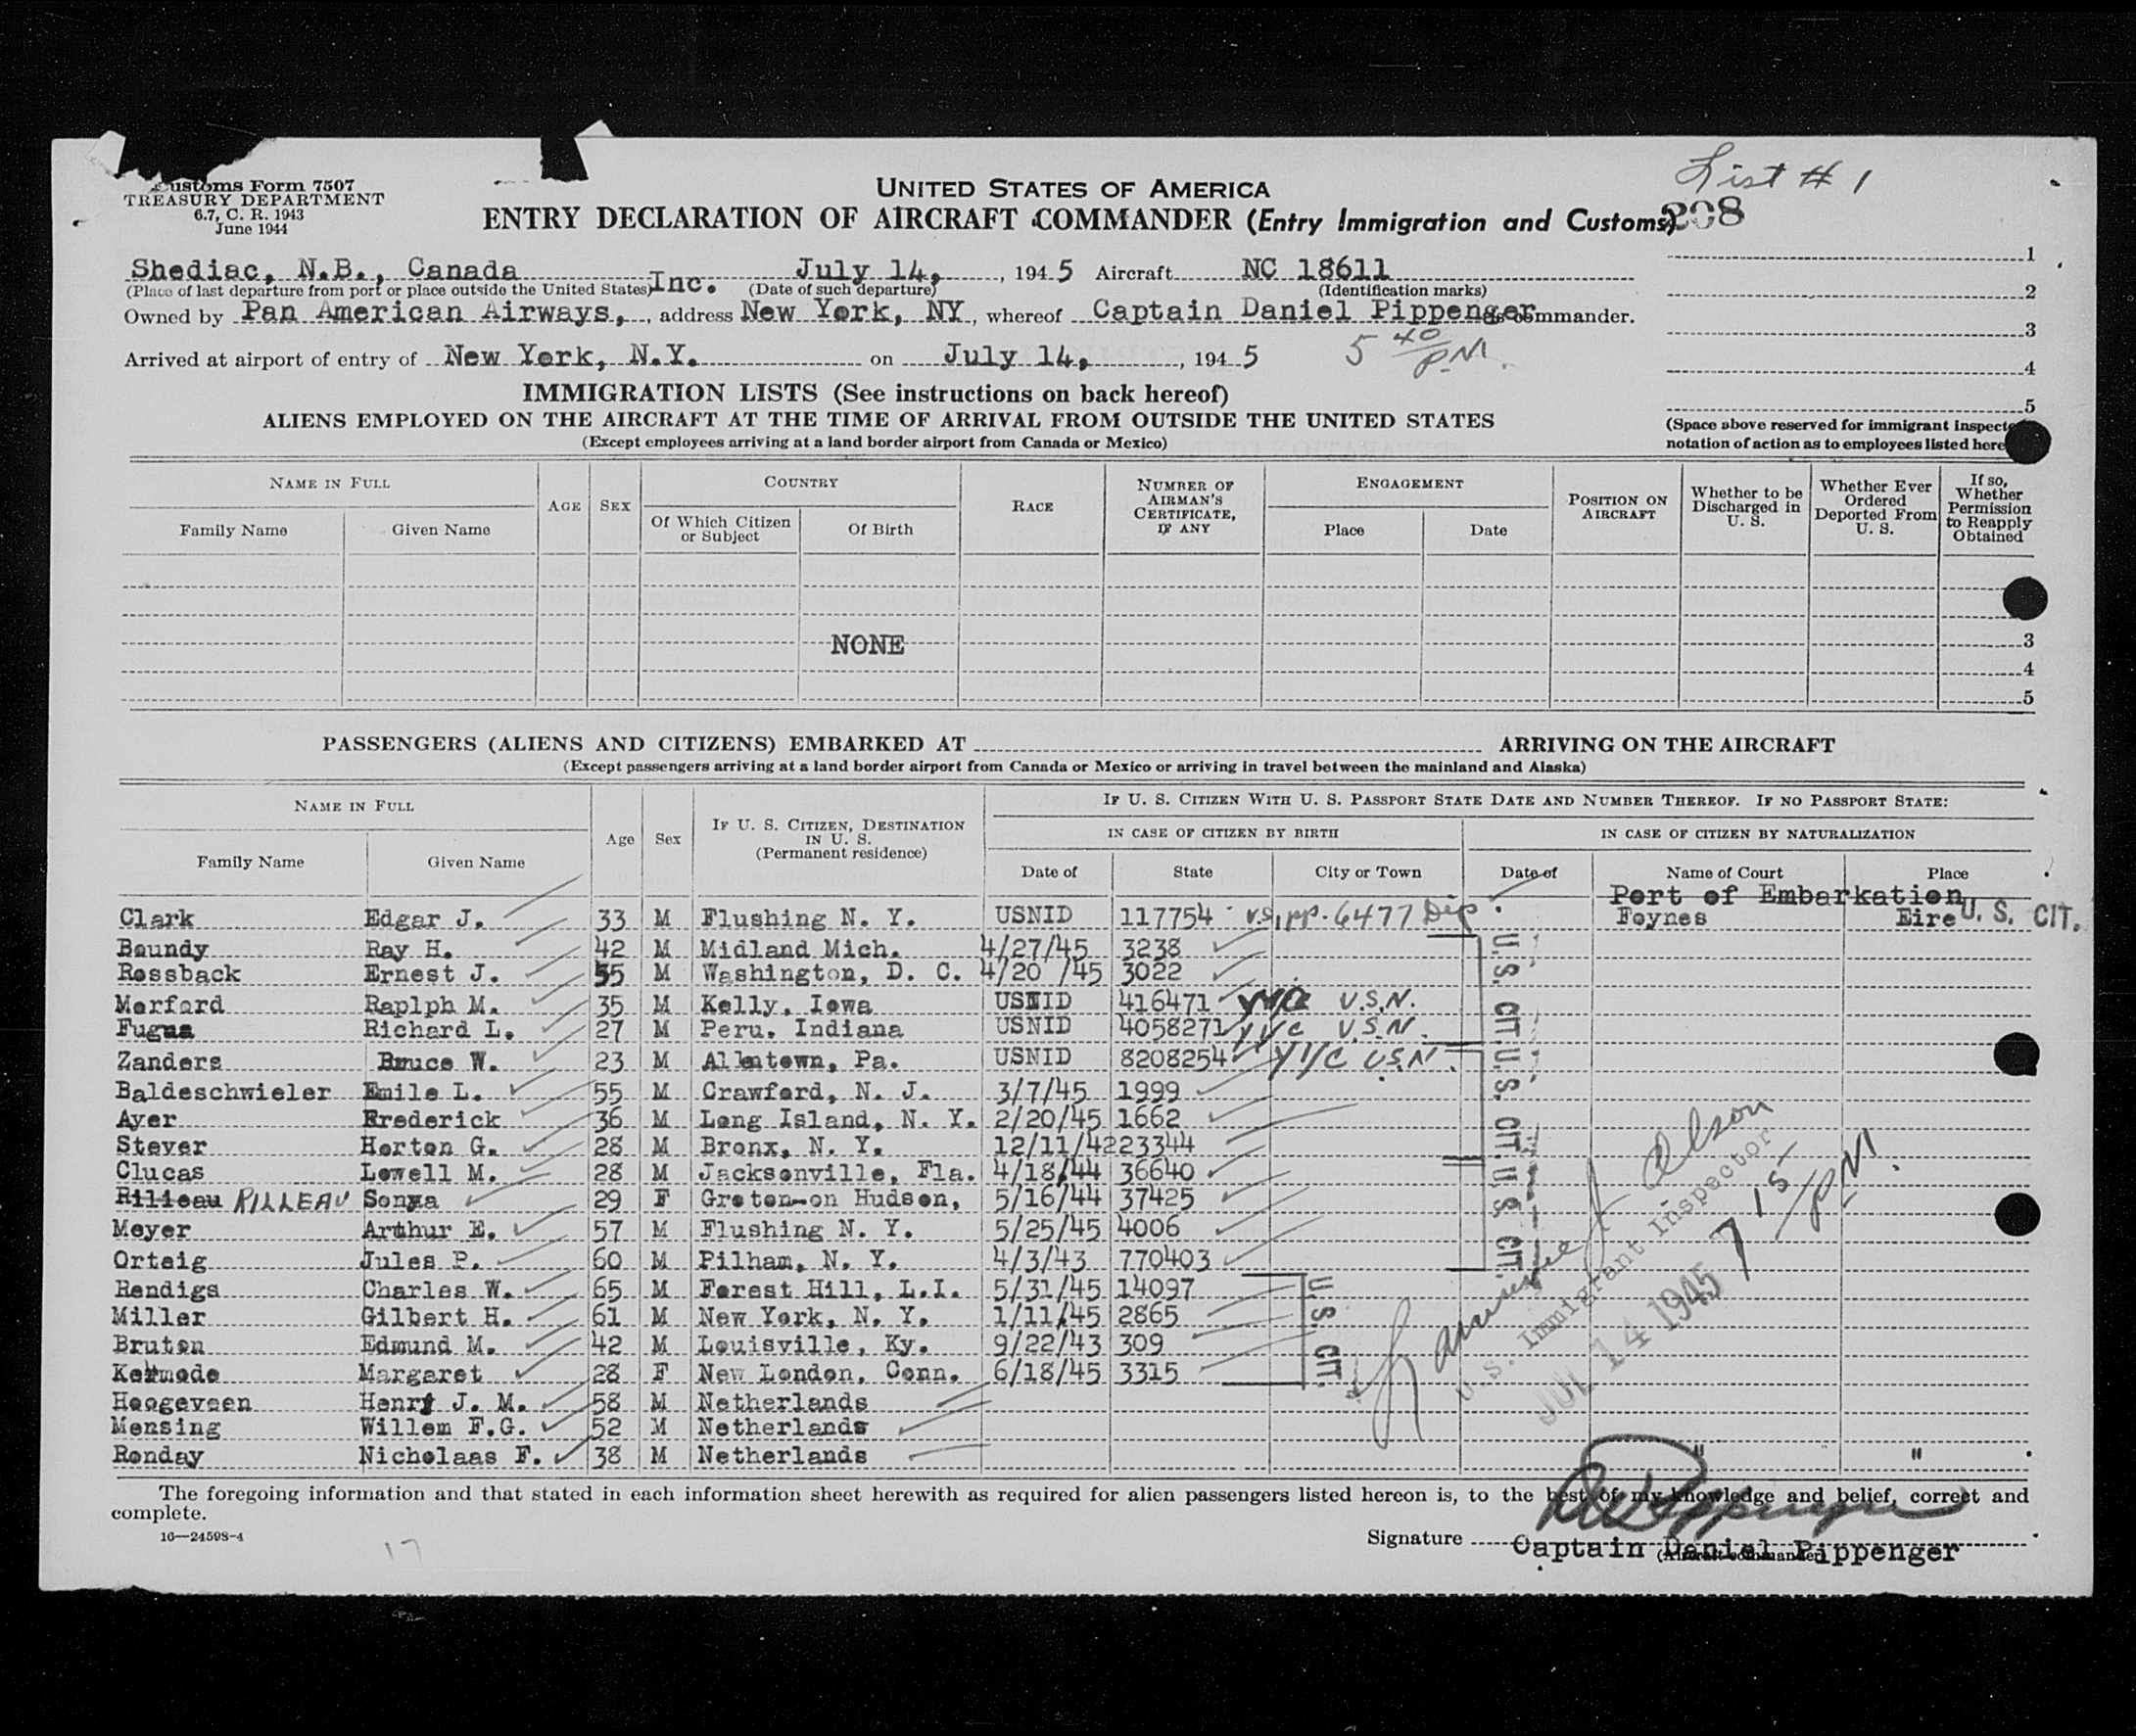 Customs Form 7507
TREASURY DEPARTMENT
6.7, C. R. 1943
June 1944
UNITED STATES OF AMERICA
ENTRY DECLARATION OF AIRCRAFT COMMANDER (Entry Immigration and Customs)
List # 1
208
Shediac, N.B., Canada July 14, , 194 5 Aircraft NC 18611
(Place of last departure from port or place outside the United States) Inc. (Date of such departure) (Identification marks)
Owned by Pan American Airways, , address New York, NY , whereof Captain Daniel Pippenger commander.
Arrived at airport of entry of New York, N.Y. on July 14, , 194 5 5 40/PM.
1
2
3
4
5
(Space above reserved for immigrant inspector
notation of action as to employees listed here
IMMIGRATION LISTS (See instructions on back hereof)
ALIENS EMPLOYED ON THE AIRCRAFT AT THE TIME OF ARRIVAL FROM OUTSIDE THE UNITED STATES
(Except employees arriving at a land border airport from Canada or Mexico)
NAME IN FULL
Family Name Given Name
AGE SEX
COUNTRY
Of Which Citizen or Subject Of Birth
RACE
NUMBER OF AIRMAN'S CERTIFICATE, IF ANY
ENGAGEMENT
Place Date
POSITION ON AIRCRAFT
Whether to be Discharged in U. S.
Whether Ever Ordered Deported From U. S.
If so, Whether Permission to Reapply Obtained
NONE 3
4
5
PASSENGERS (ALIENS AND CITIZENS) EMBARKED AT ARRIVING ON THE AIRCRAFT
(Except passengers arriving at a land border airport from Canada or Mexico or arriving in travel between the mainland and Alaska)
NAME IN FULL
Family Name Given Name
Age Sex
IF U. S. CITIZEN, DESTINATION IN U. S.
(Permanent residence)
IF U. S. CITIZEN WITH U. S. PASSPORT STATE DATE AND NUMBER THEREOF. IF NO PASSPORT STATE:
IN CASE OF CITIZEN BY BIRTH IN CASE OF CITIZEN BY NATURALIZATION
Date of State City or Town Date of Name of Court Place
Port of Embarkation
Clark Edgar J. 33 M Flushing N. Y. USNID 117754 U.S. pp. 6477 Dip. Foynes Eire U. S. CIT.
Boundy Ray H. 42 M Midland Mich. 4/27/45 3238
Rossback Ernest J. 55 M Washington, D. C. 4/20 /45 3022
Morford Raplph M. 35 M Kelly, Iowa USNID 416471 U.S.N.
Fugua Richard L. 27 M Peru, Indiana USNID 4058271 Y1/c U.S.N.
Zanders Bruce W. 23 M Allentown, Pa. USNID 8208254 Y1/c U.S.N.
Baldeschwieler Emile L. 55 M Crawford, N. J. 3/7/45 1999
Ayer Frederick 36 M Long Island, N. Y. 2/20/45 1662
Stever Horton G. 28 M Bronx, N. Y. 12/11/42 23344
Clucas Lowell M. 28 M Jacksonville, Fla. 4/18/44 36640
Rilieau RILLEAU Sonya 29 F Groton-on Hudson, 5/16/44 37425
Meyer Arthur E. 57 M Flushing N. Y. 5/25/45 4006
Orteig Jules P. 60 M Pilham, N. Y. 4/3/43 770403
Rendigs Charles W. 65 M Forest Hill, L.I. 5/31/45 14097
Miller Gilbert H. 61 M New York, N. Y. 1/11/45 2865
Bruton Edmund M. 42 M Louisville, Ky. 9/22/43 309
Kermode Margaret 28 F New London, Conn. 6/18/45 3315
Hoogeveen Henry J. M. 58 M Netherlands
Mensing Willem F.G. 52 M Netherlands
Ronday Nicholaas F. 38 M Netherlands " "
U. S. CIT.
U. S. CIT.
U. S. CIT.
U. S. CIT.
Lawrence J Olson
U. S. Immigrant Inspector
JUL 14 1945
7 15/PM.
The foregoing information and that stated in each information sheet herewith as required for alien passengers listed hereon is, to the best of my knowledge and belief, correct and
complete.
16—24598-4
17
Signature D Pippenger
Captain Daniel Pippenger
(Aircraft commander)